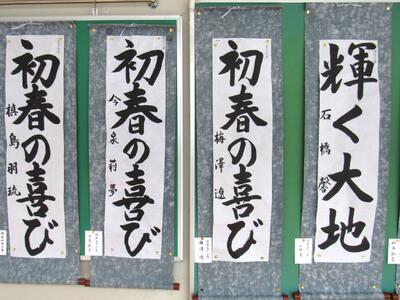 初春の喜び
槙島羽琉
初春の喜び
今泉莉夢
初春の喜び
梅澤遼
輝く大地
石橋馨